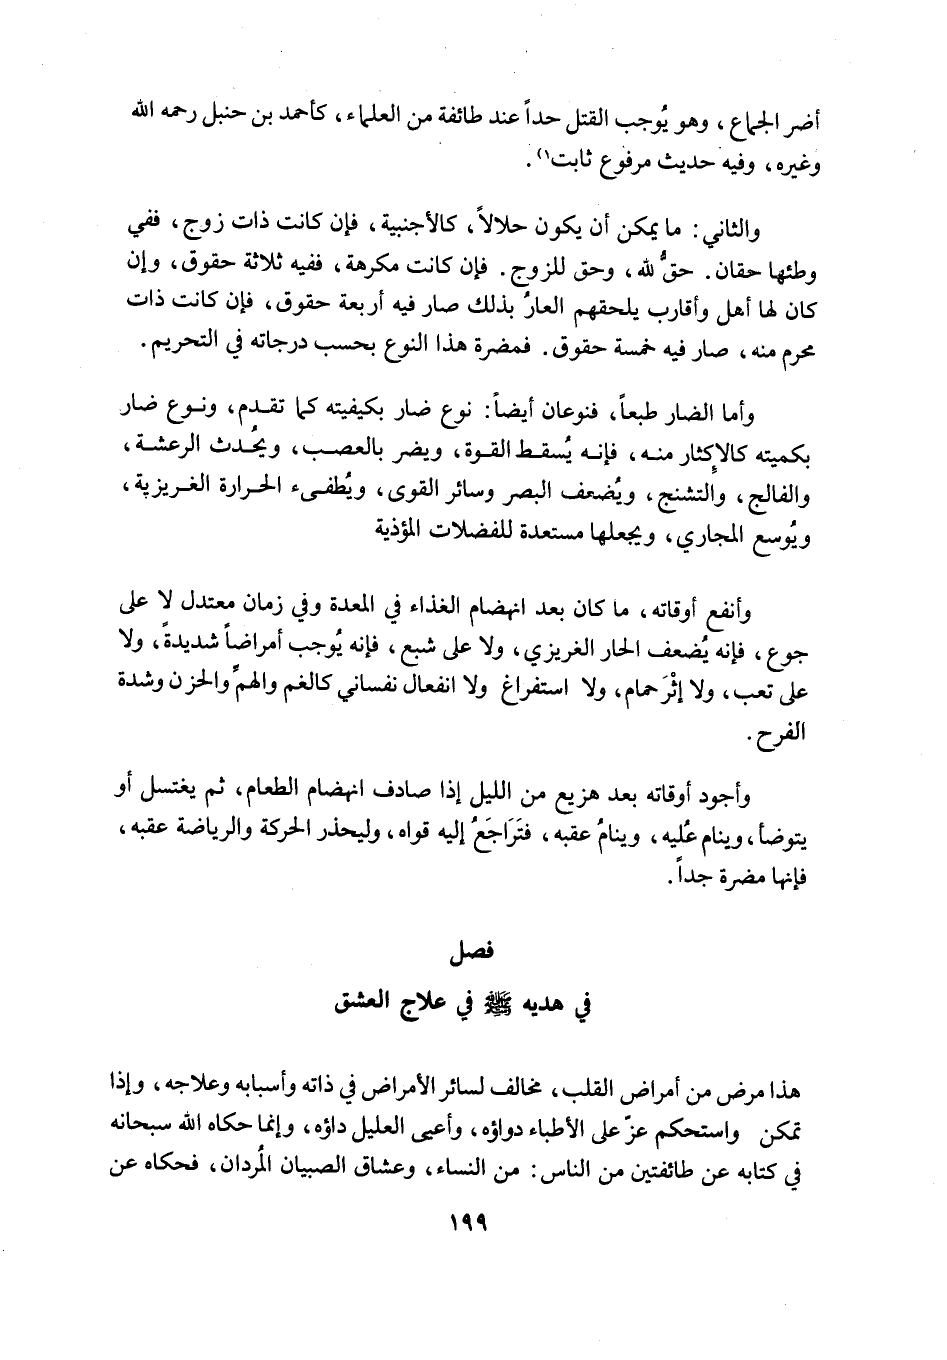 أضر الجماع، وهو يُوجب القتل حداً عند طائفة من العلماء، كأحمد بن حنبل رحمه الله
وغيره، وفيه حديث مرفوع ثابت(١).
والثاني: ما يمكن أن يكون حلالاً، كالأجنبية، فإن كانت ذات زوج، ففي
وطئها حقان. حقٌّ لله، وحق للزوج. فإن كانت مكرهة، ففيه ثلاثة حقوق، وإن
كان لها أهل وأقارب يلحقهم العارُ بذلك صار فيه أربعة حقوق، فإن كانت ذات
محرم منه، صار فيه خمسة حقوق. فمضرة هذا النوع بحسب درجاته في التحريم.
وأما الضار طبعاً، فنوعان أيضاً: نوع ضار بكيفيته كما تقدم، ونوع ضار
بكميته كالإكثار منه، فإنه يُسقط القوة، ويضر بالعصب، ويُحدث الرعشة،
والفالج، والتشنج، ويُضعف البصر وسائر القوى، ويُطفىء الحرارة الغريزية،
ويُوسع المجاري، ويجعلها مستعدة للفضلات المؤذية
وأنفع أوقاته، ما كان بعد انهضام الغذاء في المعدة وفي زمان معتدل لا على
جوع، فإنه يُضعف الحار الغريزي، ولا على شبع، فإنه يُوجب أمراضاً شديدةً، ولا
على تعب، ولا إثْرَ حمام، ولا استفراغ ولا انفعال نفساني كالغم والهمِّ والحزن وشدة
الفرح.
وأجود أوقاته بعد هزيع من الليل إذا صادف انهضام الطعام، ثم يغتسل أو
يتوضأ، وينام عُليه، وينامُ عقبه، فتَرَاجَعُ إليه قواه، وليحذر الحركة والرياضة عقبه،
فإنها مضرة جداً.
فصل
في هديه ﷺ في علاج العشق
هذا مرض من أمراض القلب، مخالف لسائر الأمراض في ذاته وأسبابه وعلاجه، وإذا
تمكن واستحكم عزّ على الأطباء دواؤه، وأعيى العليل داؤه، وإنما حكاه الله سبحانه
في كتابه عن طائفتين من الناس: من النساء، وعشاق الصبيان المُردان، فحكاه عن
١٩٩